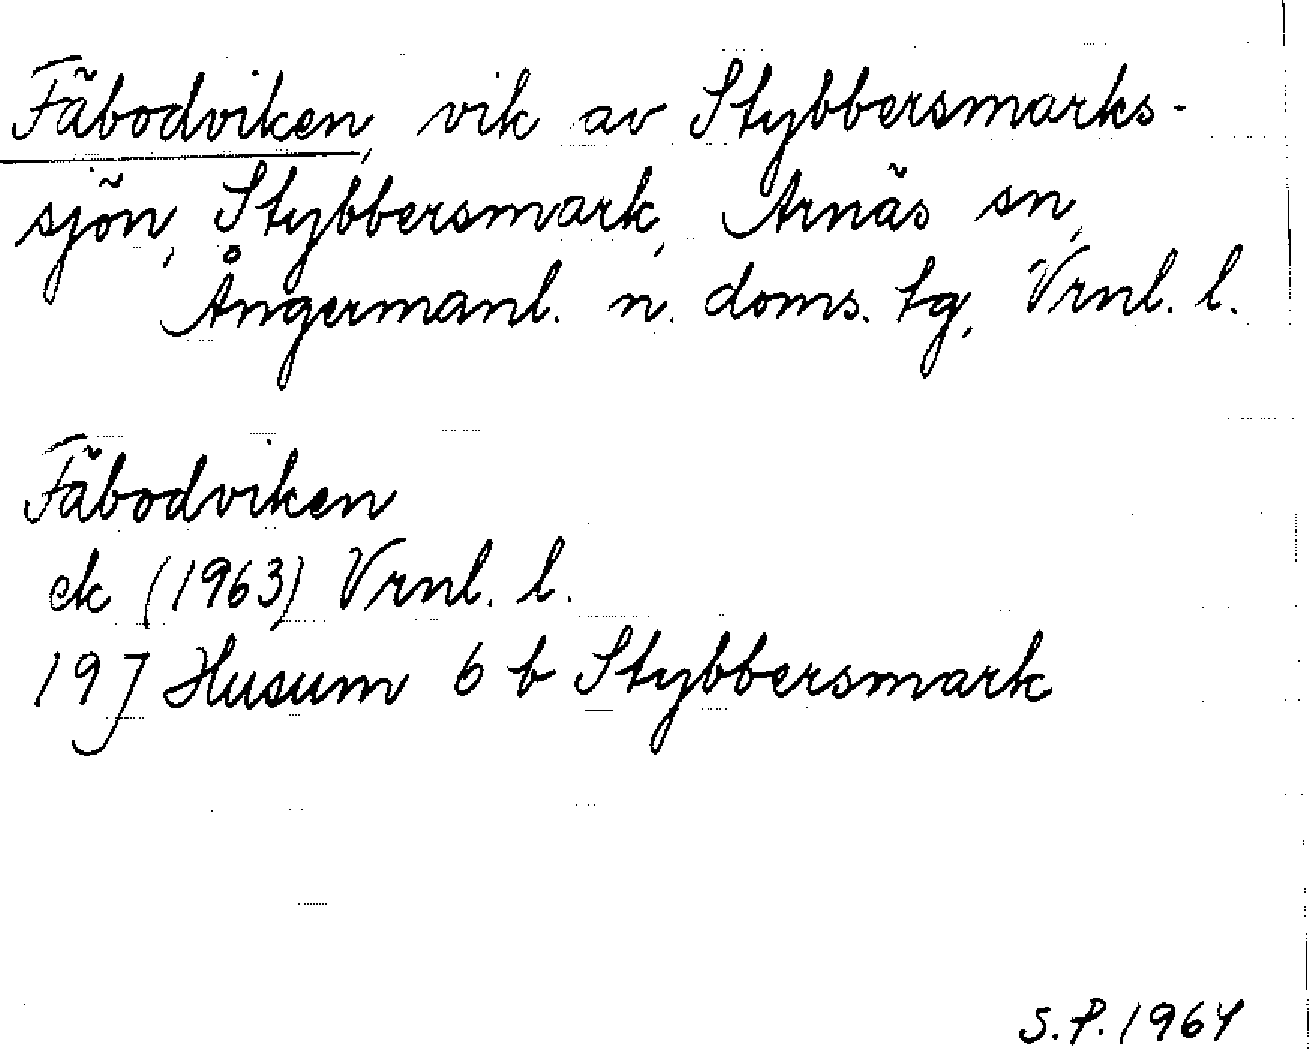 Fäbodviken, vik av Stybbersmarks-
sjön, Stybbersmark, Arnäs sn,
Ångermanl. n. doms. tg, Vrnl. l.
Fäbodviken
ek (1963) Vrnl. l.
19J Husum 6 b Stybbersmark
S.P. 1964